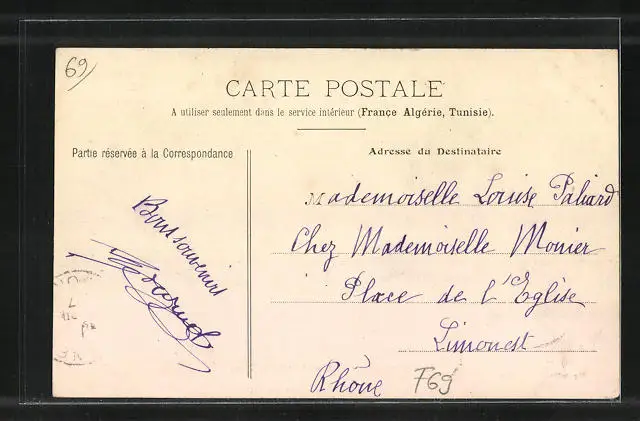 69
CARTE POSTALE
A utiliser seulement dans le service intérieur (France Algérie, Tunisie).
Partie réservée à la Correspondance
Adresse du Destinataire
Bons souvenirs
Mademoiselle Louise Paliard
Chez Mademoiselle Monier
Place de l'Eglise
Limonest
Rhône
F69